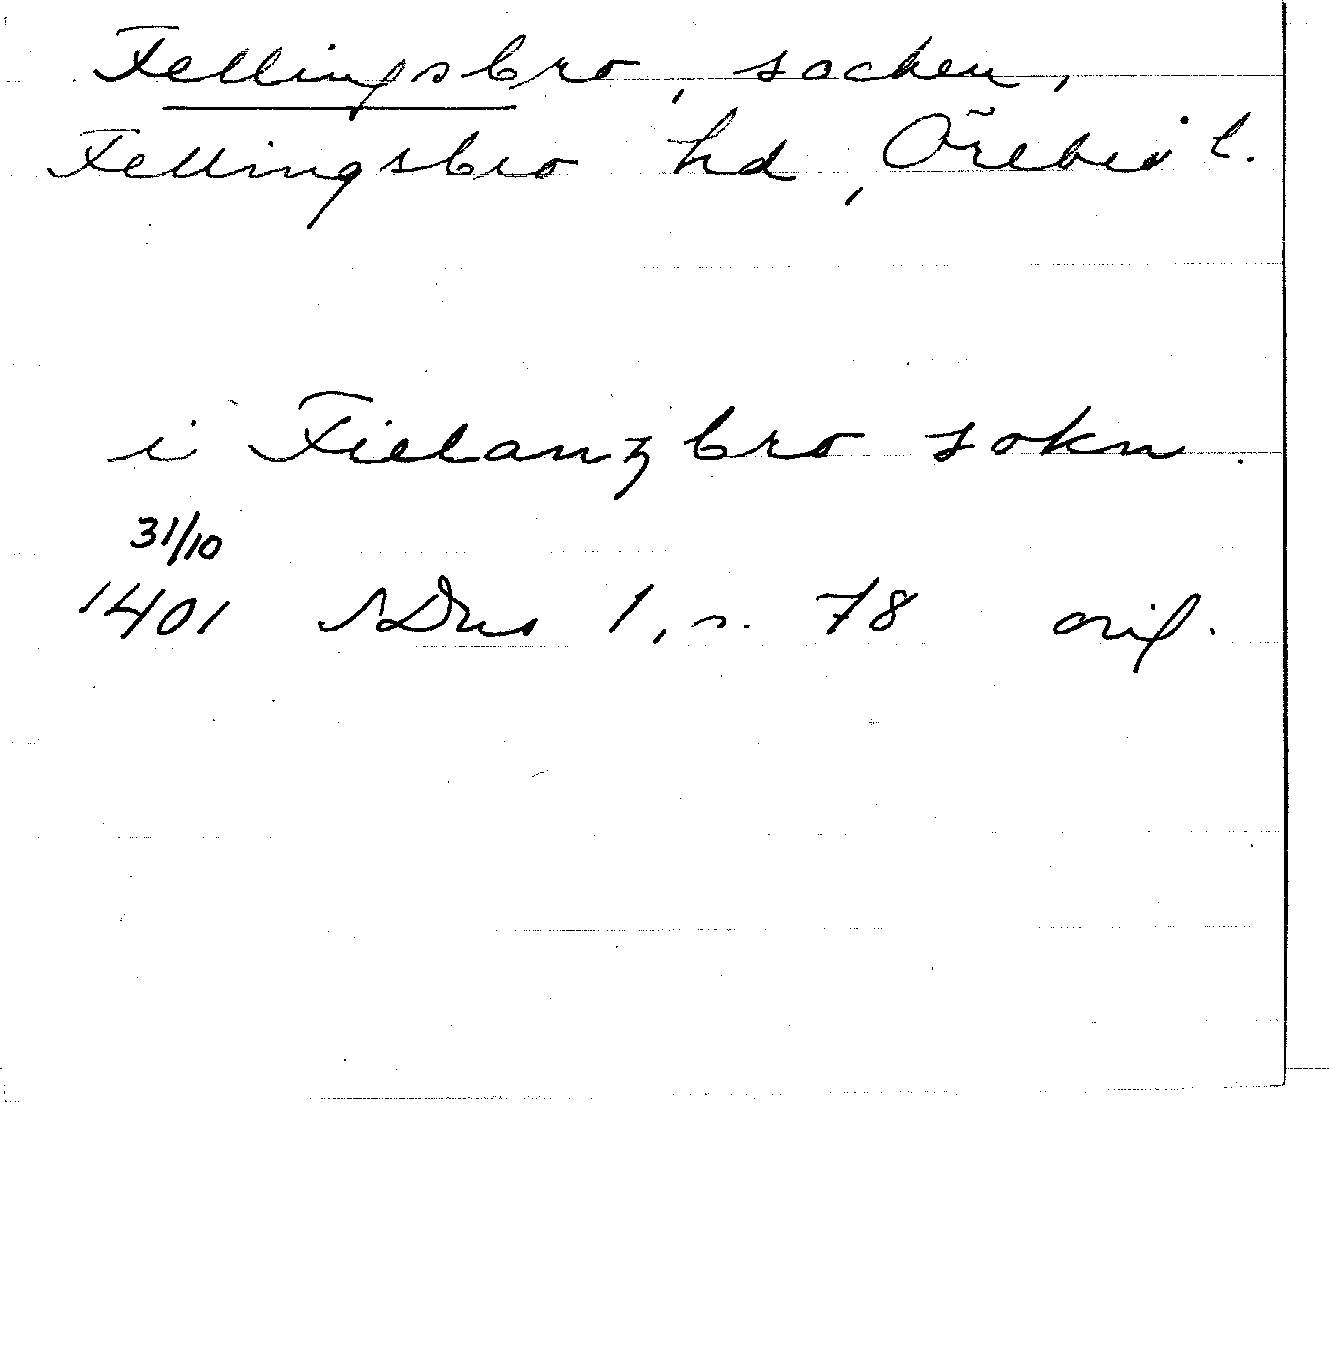 Fellingsbro, socken,
Fellingsbro hd, Örebro l.
i Fiellanzbro sokn.
31/10
1401 SDns 1, s. 78 orig.